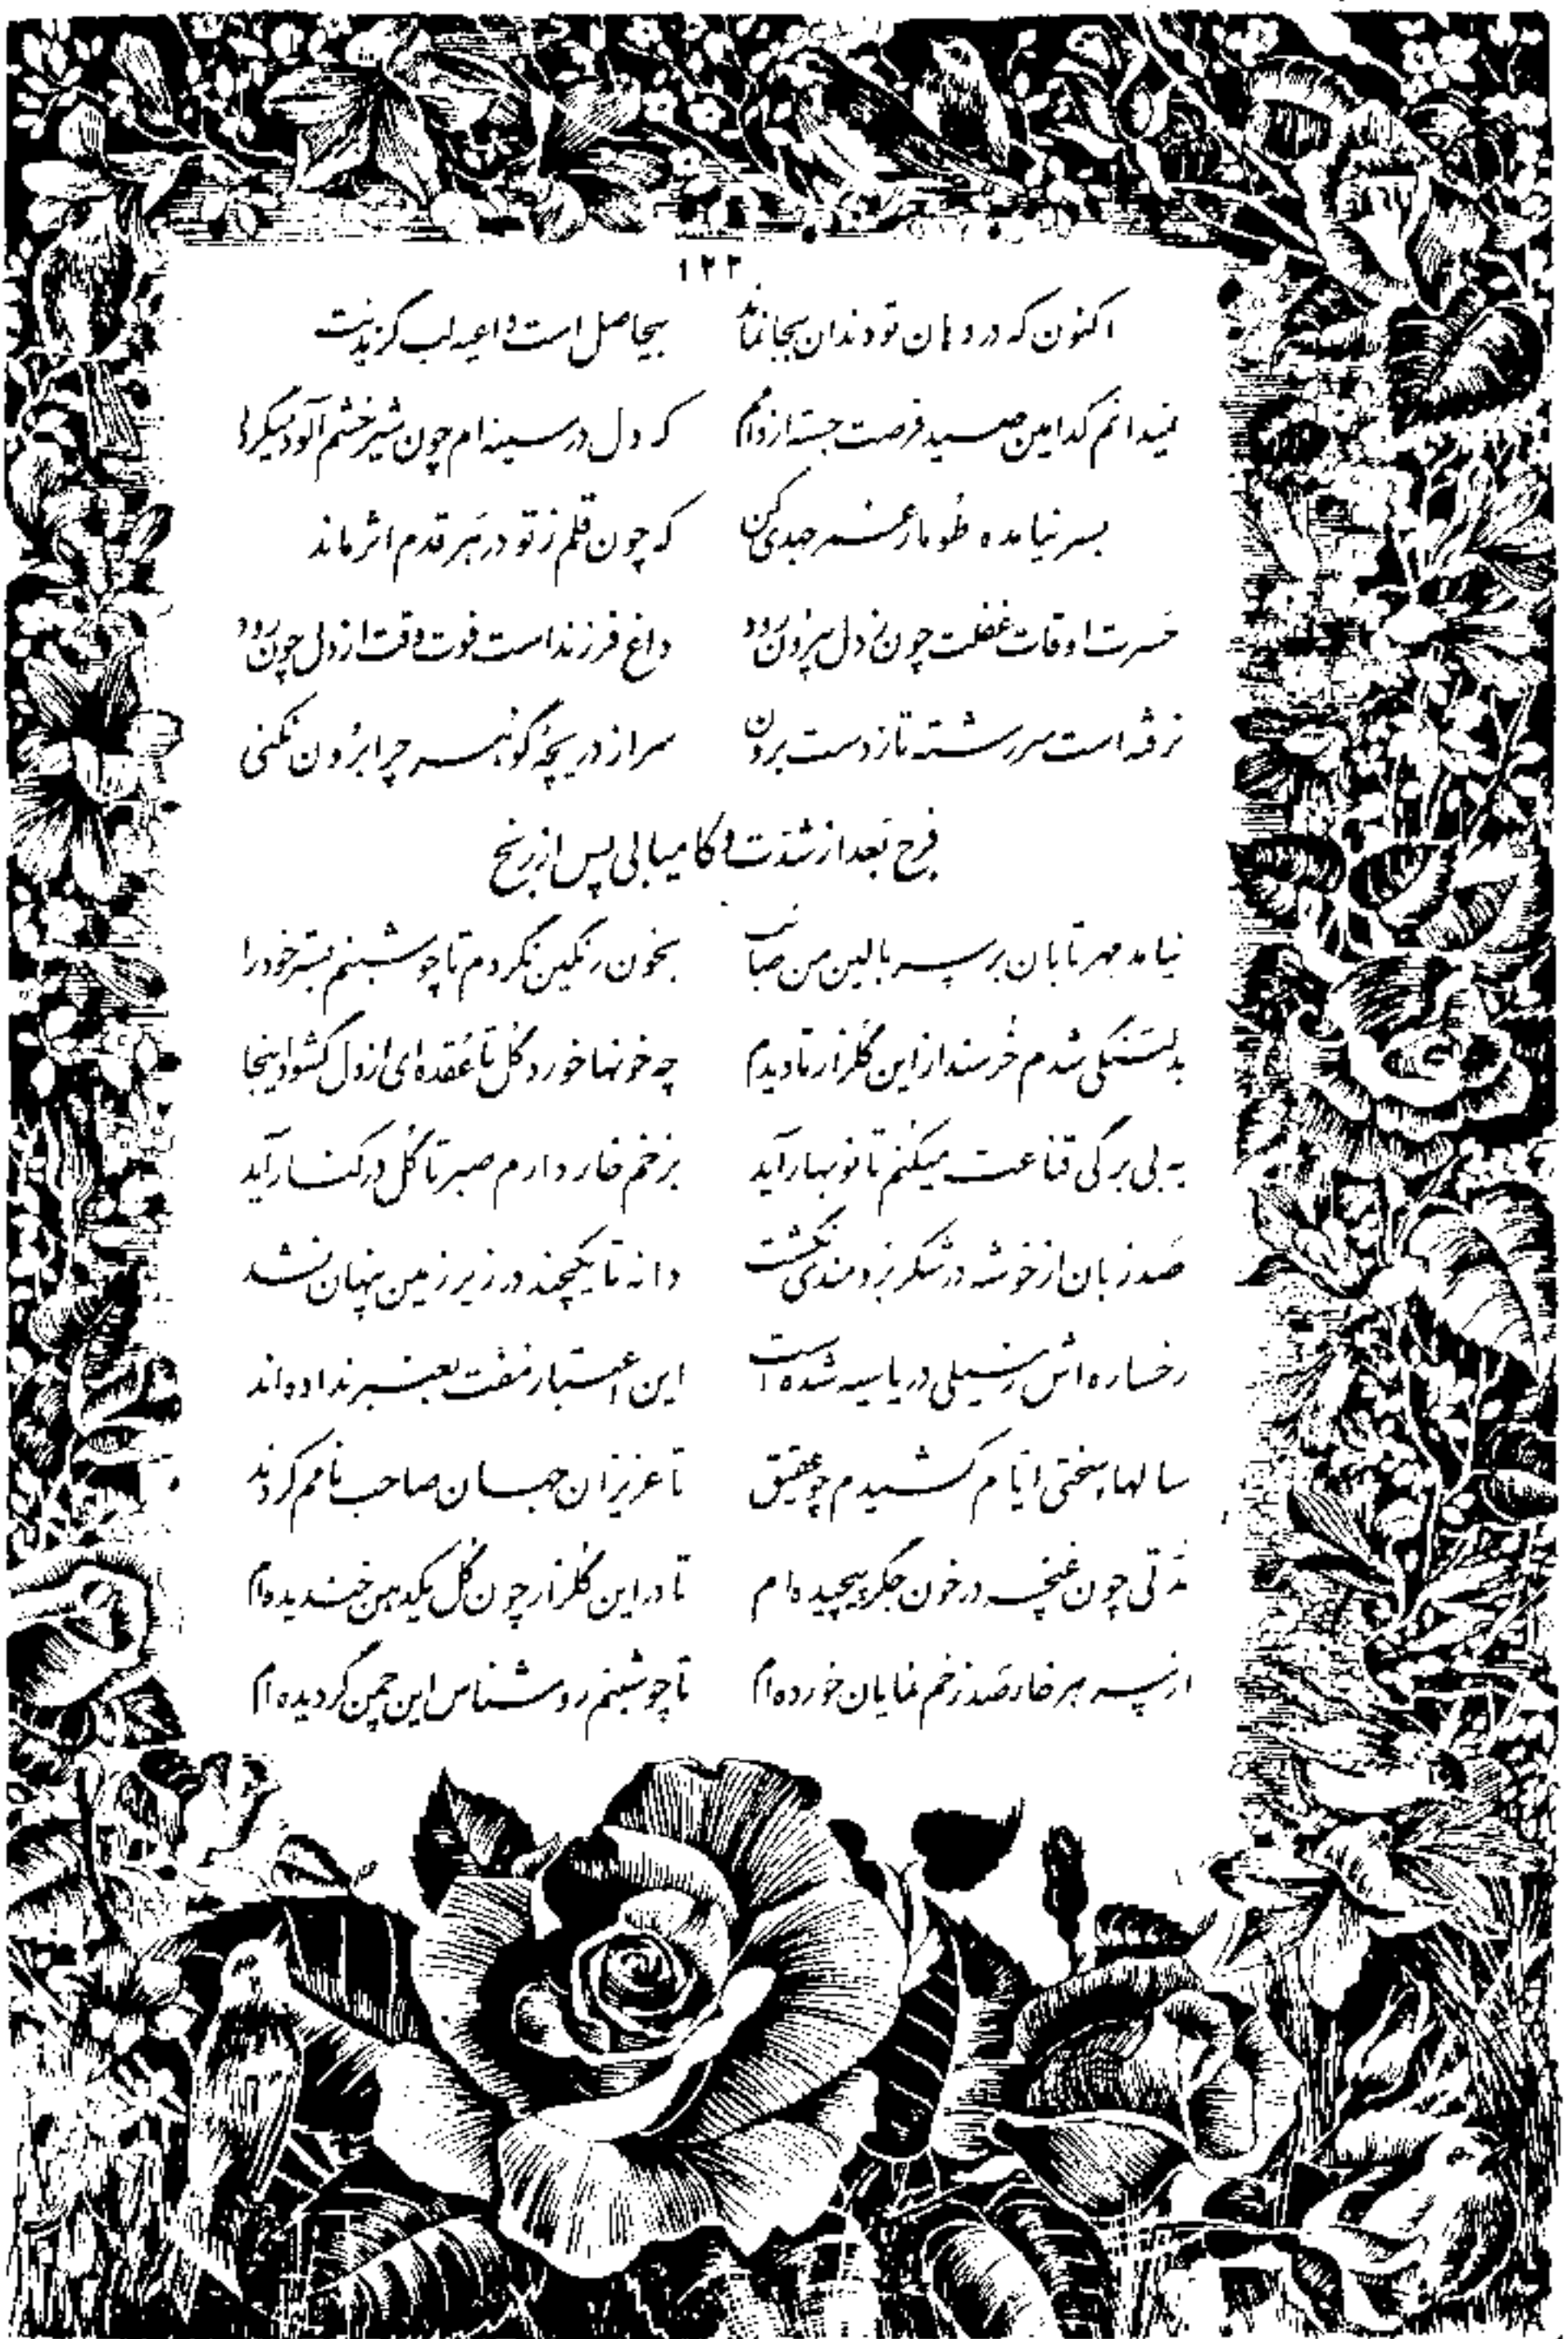 ۱۲۳
اکنون که در دهان تو دندان بجا نماند بیحاصل است داعیه لب گزیدنت
نمیدانم کدامین صید فرصت جسته از دامم که دل در سینه ام چون شیر خشم آلود میگردد
بسر نیامده طومار عمر جهدی کن که چون قلم ز تو در هر قدم اثر ماند
حسرت اوقات غفلت چون ز دل بیرون رود داغ فرزند است فوت وقت از دل چون رود
نرفته است سر رشته تا ز دست برون سر از دریچه گوهر چرا برون نکنی
فرح بعد از شدت و کامیابی پس از رنج
نیامد مهر تابان بر سر بالین من صائب بخون رنگین نکردم تا چو شبنم بستر خود را
بدلتنگی شدم خرسند از این گلزار تا دیدم چه خونها خورد گل تا عقده ای از دل گشود اینجا
به بی برگی قناعت میکنم تا نوبهار آید بزخم خار دارم صبر تا گل در کنار آید
صد زبان از خوشه در شکر برومندی نگشت دانه تا یکچند در زیر زمین پنهان نشد
رخساره اش ز سیلی دریا سیه شده است این اعتبار مفت بعنبر نداده اند
سالها سختی ایام کشیدم چو عقیق تا عزیزان جهان صاحب نامم کردند
مدتی چون غنچه در خون جگر پیچیده ام تا در این گلزار چون گل یکدهن خندیده ام
از سر هر خار صد زخم نمایان خورده ام تا چو شبنم روشناس این چمن گردیده ام